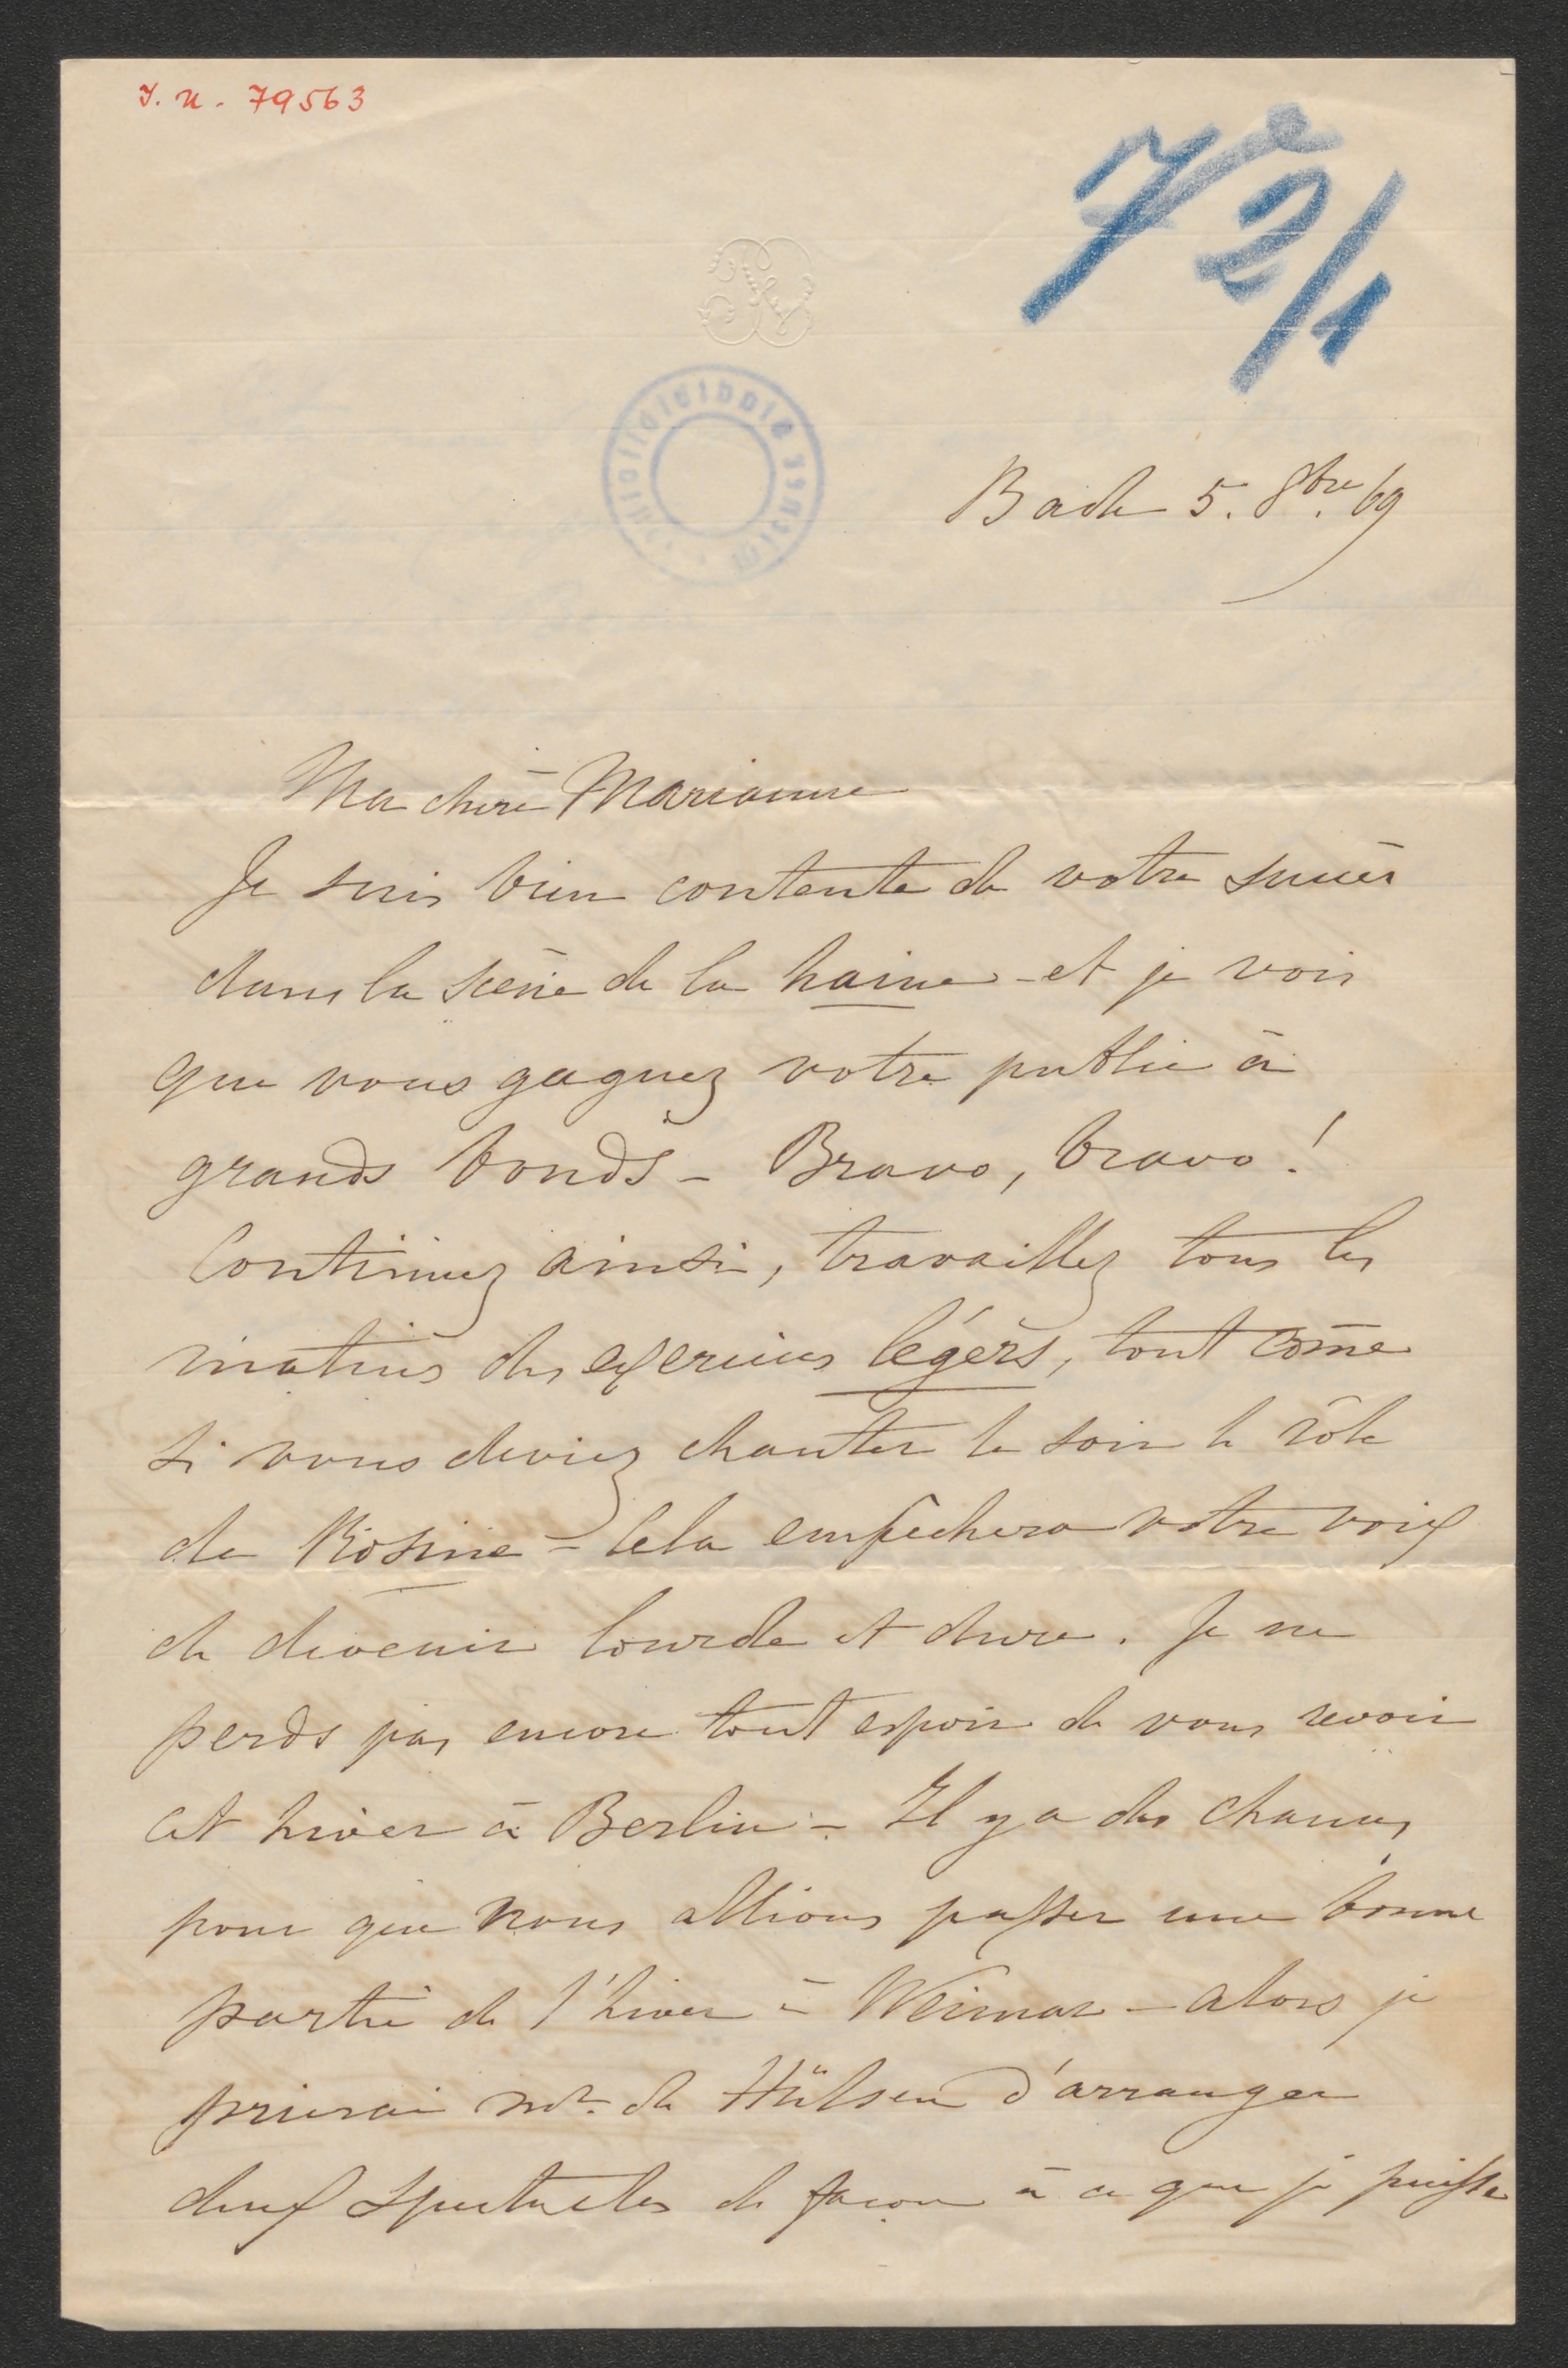 I. N. 79563
72/1
WIENER STADTBIBLIOTHEK
Bade 5. 8bre. 69
Ma chère Marianne
Je suis bien contente de votre succès
dans la scène de la haine - et je vois
que vous gagnez votre public à
grands bonds - Bravo, bravo!
Continuez ainsi, travaillez tous les
matins des exercices légers, tout cõme
si vous deviez chanter le soir le rôle
de Rosine - Cela empêchera votre voix
de devenir lourde et dure. Je ne
perds pas encore tout espoir de vous revoir
cet hiver à Berlin - Il y a des chances
pour que nous allions passer une bonne
partie de l'hiver à Weimar - alors je
prierai Mr. de Hülsen d'arranger
deux spectacles de façon à ce que je puisse